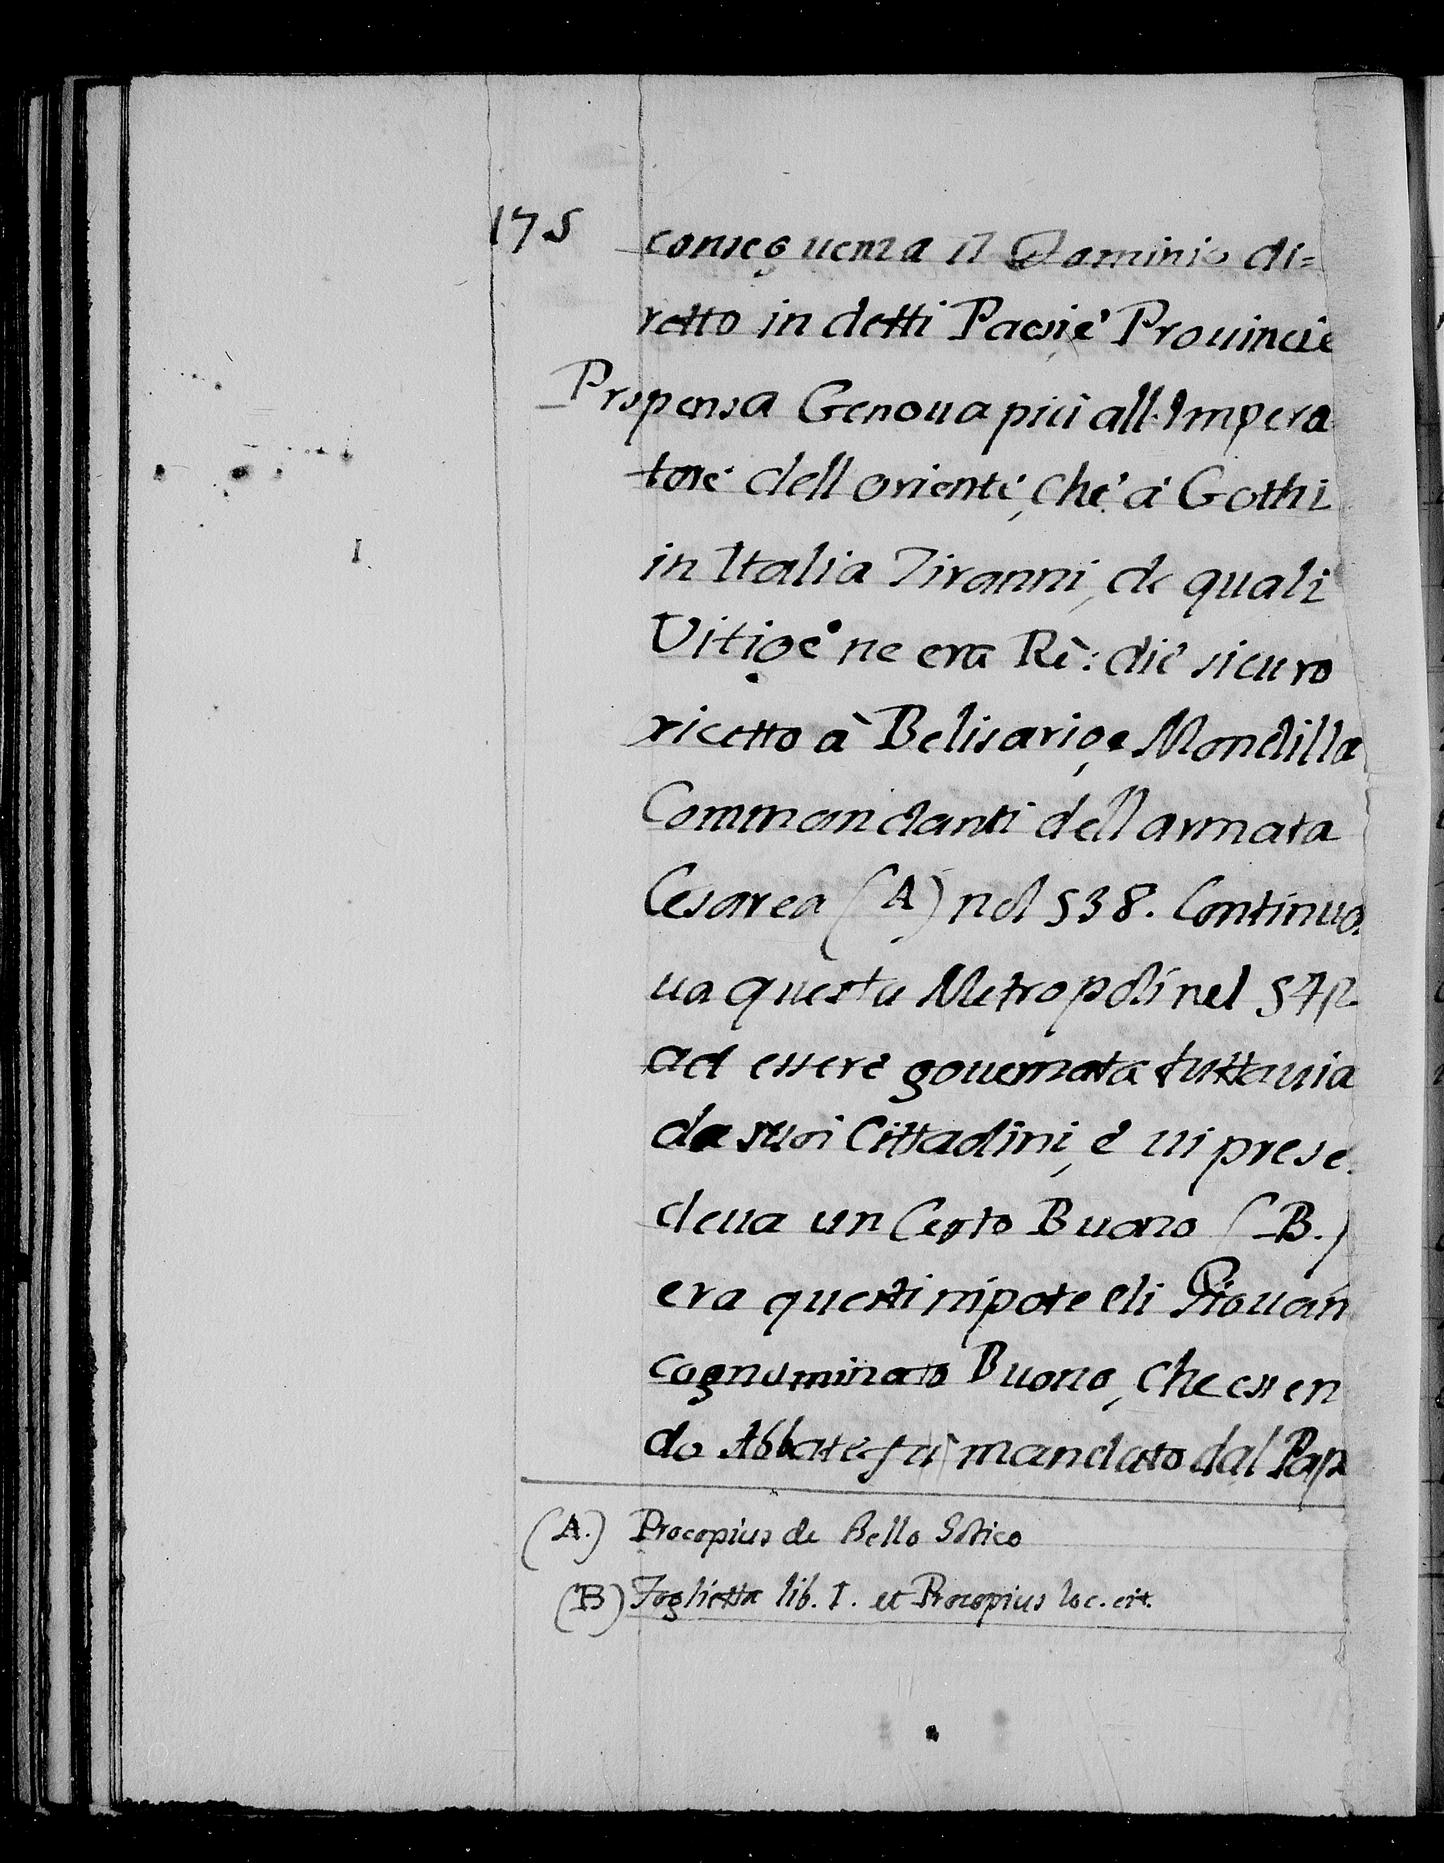 175
conseguenza il Dominio di=
retto in detti Paesi, e' Prouincie
Propensa Genoua più all'Impera
tore dell oriente, che' a' Gothi
in Italia Tiranni, de quali
Vitige ne era Rè: diè sicuro
ricetto à Belisario, e Mondilla
Commandanti dell armata
Cesarea (A) nel 538. Continua
ua questa Metropoli nel 542
ad essere gouernata tuttauia
da suoi Cittadini, e ui prese
deua un Certo Buono (B.)
era questi nipote di Giouan
cognominato Buono, che essen
do Abbate fù mandato dal Pap
(A.) Procopius de Bello Gotico
(B) Foglietta lib. I. et Procopius loc. cit.